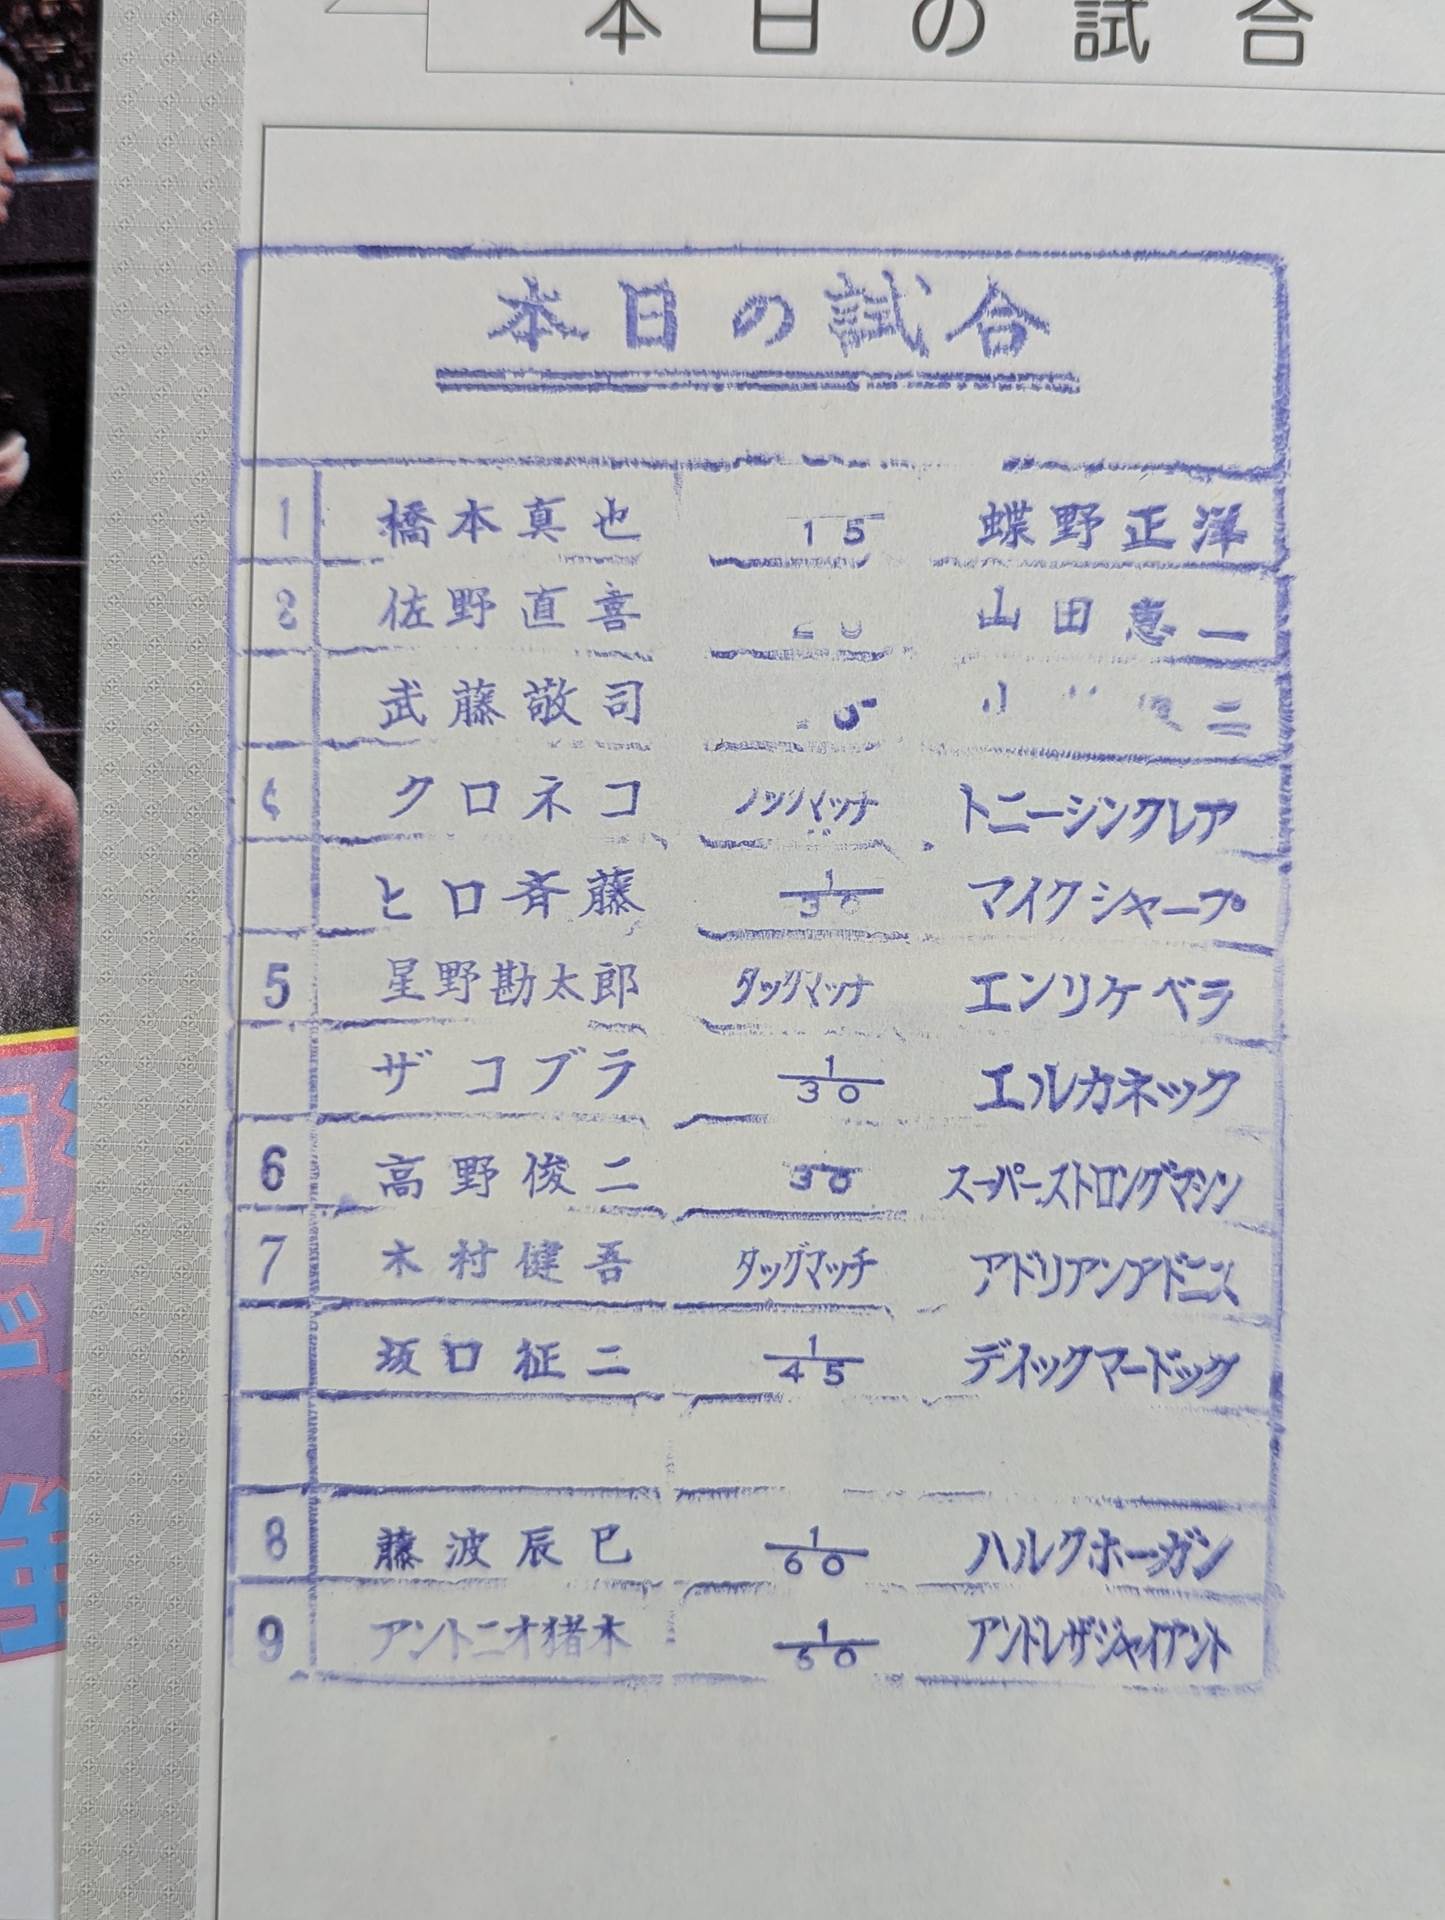 本日の試合
本日の試合
1 橋本真也 15 蝶野正洋
2 佐野直喜 20 山田恵一
武藤敬司 二
クロネコ タッグマッチ トニーシンクレア
ヒロ斉藤 1/30 マイクシャープ
5 星野勘太郎 タッグマッチ エンリケベラ
ザコブラ 1/30 エルカネック
6 高野俊二 30 スーパーストロングマシン
7 木村健吾 タッグマッチ アドリアンアドニス
坂口征二 1/45 デイックマードック
8 藤波辰巳 1/60 ハルクホーガン
9 アントニオ猪木 1/60 アンドレザジャイアント